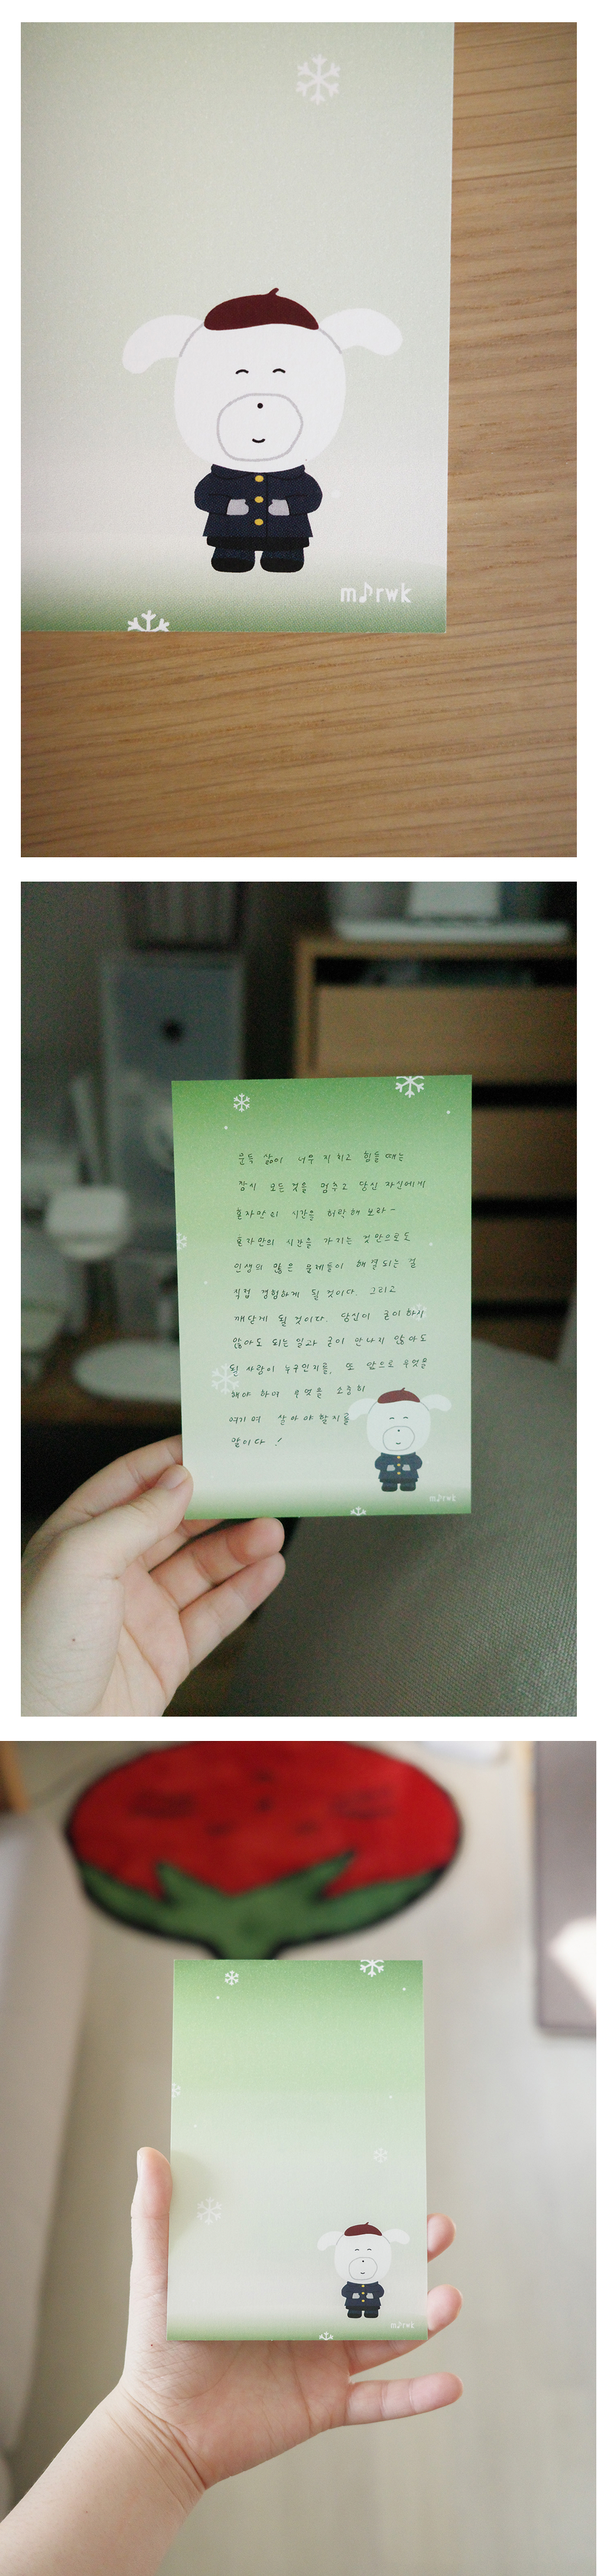 m♪rwk
문득 삶이 너무 지치고 힘들 때는
잠시 모든 것을 멈추고 당신 자신에게
혼자만의 시간을 허락해 보라-
혼자만의 시간을 가지는 것 만으로도
인생의 많은 문제들이 해결되는 걸
직접 경험하게 될 것이다. 그리고
깨닫게 될 것이다. 당신이 굳이 하지
않아도 되는 일과 굳이 만나지 않아도
될 사람이 누구인지를, 또 앞으로 무엇을
해야 하며 무엇을 소중히
여기며 살아야 할지를
말이다!
m♪rwk
m♪rwk